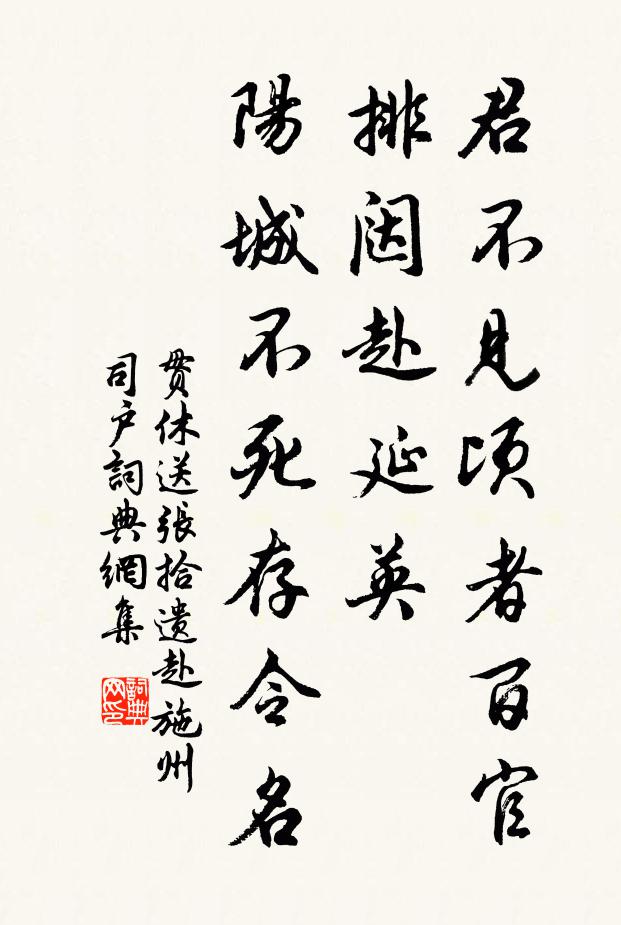 君不見頃者百官
排闼赴延英
陽城不死存令名
貫休送張拾遗赴施州
司户詞典網集
詞典网印